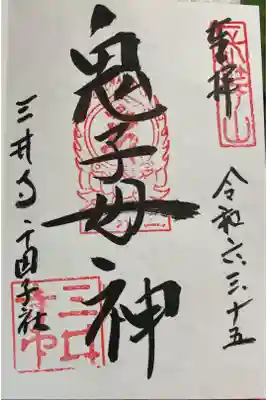 奉拝
長等山
令和六.三.十五
鬼子母神
三井寺・千団子社
三井寺印